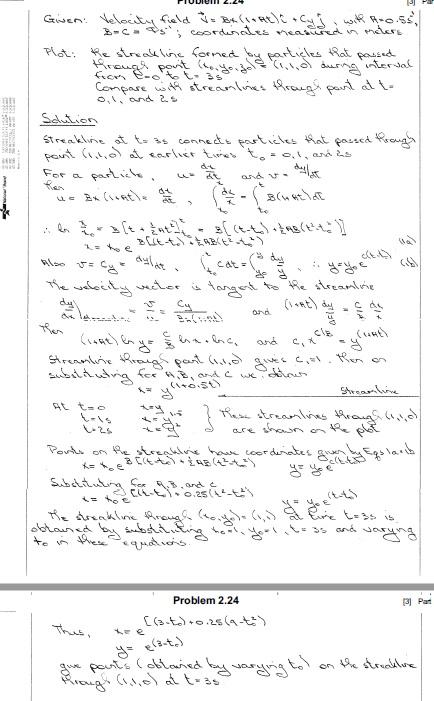 Problem 2.24
[3] Par
Given: Velocity field V = Bx(1+At)î + Cyĵ, with A=0.5s⁻¹,
B=C= s⁻¹; coordinates measured in meters
Plot: the streakline formed by particles that passed
through point (x₀,y₀,z₀) = (1,1,0) during interval
from t=0 to t= 3s
Compare with streamlines through point at t=
0,1, and 2s
Solution
Streakline at t=3s connects particles that passed through
point (1,1,0) at earlier times t₀ = 0,1, and 2s
For a particle, u= dx/dt and v= dy/dt
Then
u = Bx(1+At) = dx/dt , ∫_{x₀}^{x} dx/x = ∫_{t₀}^{t} B(1+At)dt
∴ ln x/x₀ = B[t + ½At²]_{t₀}^{t} = B[(t-t₀)+½A(t²-t₀²)]
x = x₀ e^{B[(t-t₀)+½AB(t²-t₀²)} (1a)
Also v=Cy= dy/dt , ∫_{t₀}^{t} Cdt = ∫_{y₀}^{y} dy/y , ∴ y=y₀e^{C(t-t₀)} (1b)
The velocity vector is tangent to the streamline
dy/dx)streamline = v/u = Cy/Bx(1+At) and (1+At) dy/y = C/B dx/x
Then
(1+At) ln y = C/B ln x + ln c, and c, x^{C/B} = y^{(1+At)}
Streamline through point (1,1,0) gives C₁=1. Then on
substituting for A,B, and C we obtain
x = y^{(1+0.5t)} Streamline
At t=0 x=y
t=1s x=y^{1.5} } These streamlines through (1,1,0)
t=2s x=y² are shown on the plot
Points on the streakline have coordinates given by Eqs 1a+b
x= x₀ e^{B[(t-t₀)+½AB(t²-t₀²)} y= y₀ e^{C(t-t₀)}
Substituting for A,B, and C
x = x₀ e^{[(t-t₀)+0.25(t²-t₀²)} y= y₀ e^{(t-t₀)}
The streakline through (x₀,y₀) = (1,1) at time t=3s is
obtained by substituting x₀=1, y₀=1, t= 3s and varying
t₀ in these equations.
Problem 2.24
[3] Part
Thus, x= e^{[(3-t₀)+0.25(9-t₀²)}
y= e^{(3-t₀)}
give points (obtained by varying t₀) on the streakline
through (1,1,0) at t=3s